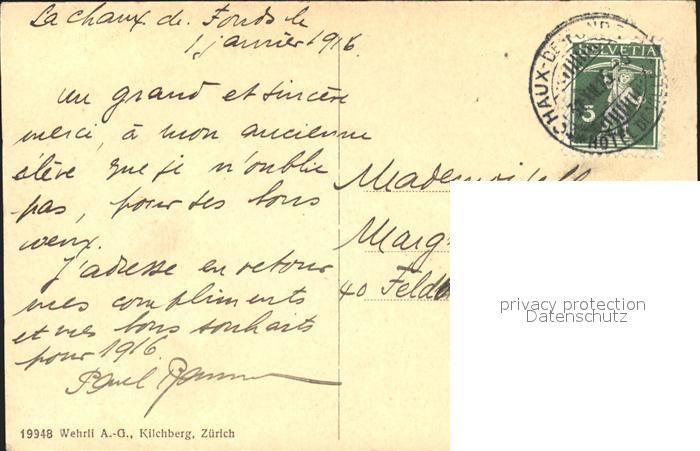 La chaux. de. Fonds le
1 janvier 1916.
Un grand et sincère
merci, à mon ancienne
élève que je n'oublie
pas, pour ses bons
voeux.
J'adresse en retour
mes compliments
et mes bons souhaits
pour 1916.
Paul
Mademoiselle
Marg
40 Feld
CHAUX-DE-FONDS
HELVETIA
5
HÔTEL DE
privacy protection
Datenschutz
19948 Wehrli A.-G., Kilchberg, Zürich